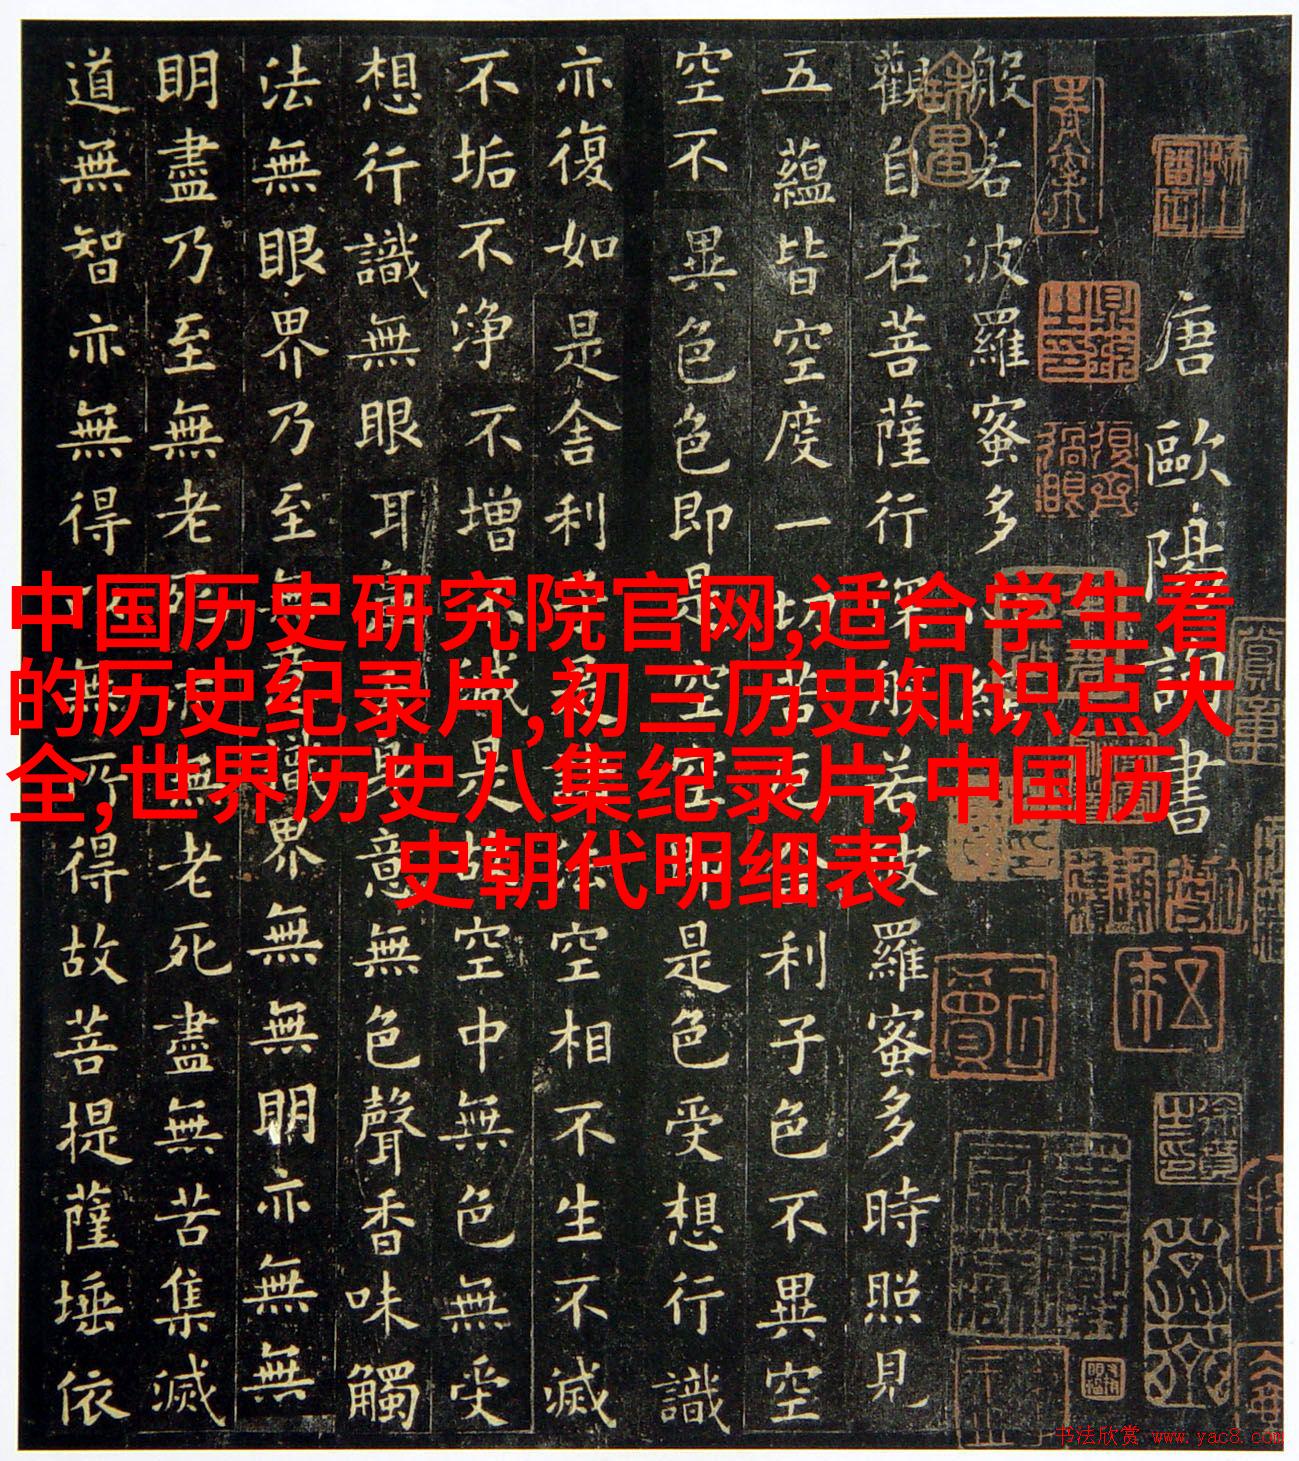 唐歐陽詢書
般若波羅蜜多心經
觀自在菩薩行深般若波羅蜜多時照見
五蘊皆空度一切苦厄舍利子色不異空
空不異色色即是空空即是色受想行識
亦復如是舍利子是諸法空相不生不滅
不垢不淨不增不減是故空中無色無受
想行識無眼耳鼻舌身意無色聲香味觸
法無眼界乃至無意識界無無明亦無無
明盡乃至無老死亦無老死盡無苦集滅
道無智亦無得以無所得故菩提薩埵依
中国历史研究院官网,适合学生看
的历史纪录片,初三历史知识点大
全,世界历史八集纪录片,中国历
史朝代明细表
书法欣赏 www.yac8.com